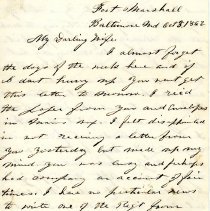 Fort Marshall
Baltimore Md Oct 31 1862
My Darling Wife.
I almost forget
the days of the week here and if
I dont hurry up You wont get
this letter to I recd
the paper from You and Envelopes
in up. I felt disappointed
in not receiving a letter from
You Yesterday but made up my
mind You was busy and perhaps
had company on account of fair
times. I have no particular news
to write one of the Regt from